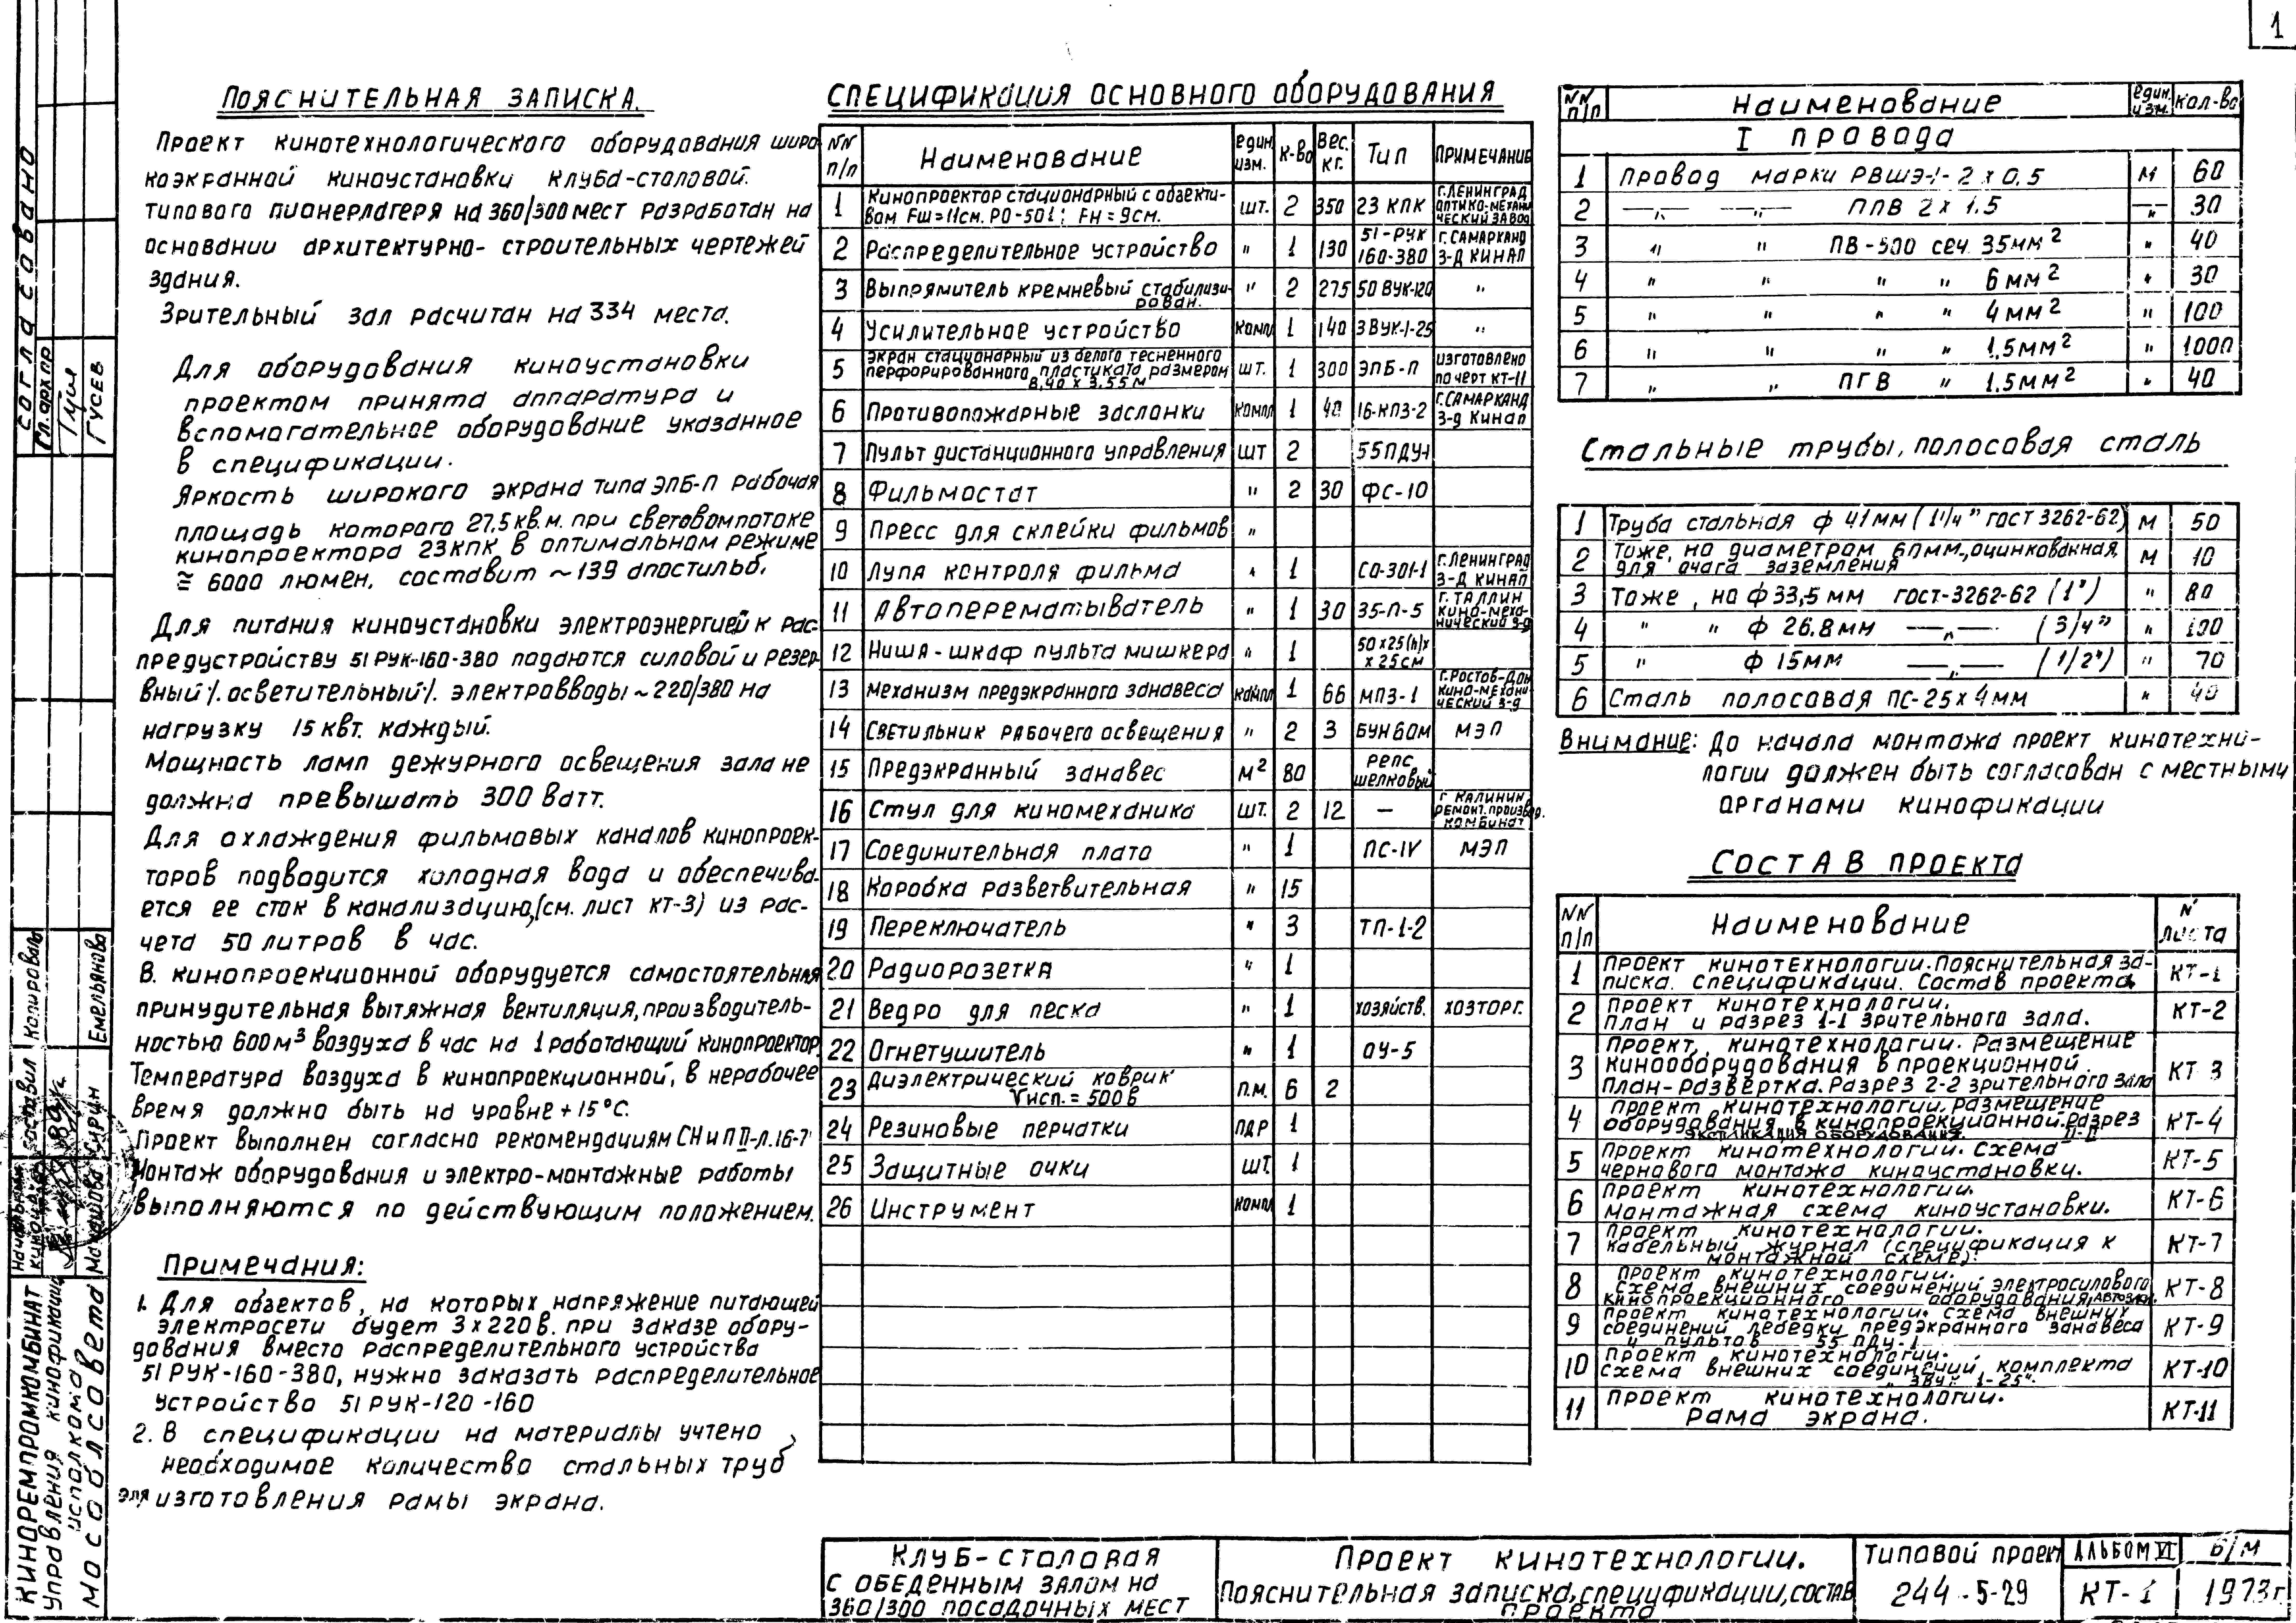 1
Пояснительная записка.
Проект кинотехнологического оборудования широ
коэкранной киноустановки клуба-столовой.
типового пионерлагеря на 360/300 мест разработан на
основании архитектурно-строительных чертежей
здания.
Зрительный зал расчитан на 334 места.
Для оборудования киноустановки
проектом принята аппаратура и
вспомогательное оборудование указанное
в спецификации.
Яркость широкого экрана типа ЭПБ-П рабочая
площадь которого 27,5 кв.м. при световом потоке
кинопроектора 23КПК в оптимальном режиме
≅ 6000 люмен, составит ~ 139 апостильб.
Для питания киноустановки электроэнергией к рас-
предустройству 51РУК-160-380 подаются силовой и резер-
вный /. осветительный /. электровводы ~ 220/380 на
нагрузку 15 квт. каждый.
Мощность ламп дежурного освещения зала не
должна превышать 300 ватт.
Для охлаждения фильмовых каналов кинопроек-
торов подводится холодная вода и обеспечива-
ется ее сток в канализацию, (см. лист КТ-3) из рас-
чета 50 литров в час.
В. кинопроекционной оборудуется самостоятельная
принудительная вытяжная вентиляция, производитель-
ностью 600 м³ воздуха в час на 1 работающий кинопроектор.
Температура воздуха в кинопроекционной, в нерабочее
время должно быть на уровне +15°С.
Проект выполнен согласно рекомендациям СН и П II-Л.16-7
Монтаж оборудования и электро-монтажные работы
выполняются по действующим положением.
Примечания:
1. Для обзектов, на которых напряжение питающей
электросети будет 3х220 в. при заказе обору-
дования вместо распределительного устройства
51 РУК-160-380, нужно заказать распределительное
устройство 51 РУК-120-160
2. В спецификации на материалы учтено
необходимое количество стальных труб
для изготовления рамы экрана.
Спецификация основного оборудования
NN п/п Наименование един. изм. к-во Вес. кг. Тип Примечание
1 Кинопроектор стационарный с объекти-вом Fш=11см. РО-501; Fн=9см. шт. 2 350 23 КПК г.Ленинград оптико-механи ческий завод
2 Распределительное устройство " 1 130 51-РУК 160-380 г.Самарканд з-д Кинап
3 Выпрямитель кремневый стабилизи-рован. " 2 275 50 ВУК-120 "
4 Усилительное устройство компл 1 140 ЗВУК-1-25 "
5 Экран стационарный из белого тесненного перфорированного пластиката размером 8,40 х 3,55 м шт. 1 300 ЭПБ-П изготовлено по черт КТ-11
6 Противопожарные заслонки компл 1 40 16-КПЗ-2 г.Самарканд з-д Кинап
7 Пульт дистанционного управления шт 2 55ПДУ-1
8 Фильмостат " 2 30 ФС-10
9 Пресс для склейки фильмов "
10 Лупа контроля фильма " 1 СО-301-1 г.Ленинград з-д Кинап
11 Автоперематыватель " 1 30 35-П-5 г. Таллин кино-меха-нический з-д
12 Ниша-шкаф пульта микшера " 1 50х25(h)х х25см
13 Механизм предэкранного занавеса компл 1 66 МПЗ-1 г.Ростов-Дон кино-механи ческий з-д
14 Светильник рабочего освещения " 2 3 БУН60М МЭП
15 Предэкранный занавес м² 80 репс шелковый
16 Стул для киномеханика шт. 2 12 — г Калинин ремонт. произвд. комбинат
17 Соединительная плата " 1 ПС-IV МЭП
18 Коробка разветвительная " 15
19 Переключатель " 3 ТП-1-2
20 Радиорозетка " 1
21 Ведро для песка " 1 хозяйств. хозторг.
22 Огнетушитель " 1 ОУ-5
23 Диэлектрический коврик Vисп.=500в п.м. 6 2
24 Резиновые перчатки пар 1
25 Защитные очки шт. 1
26 Инструмент компл 1
NN п/п Наименование един. изм. кол-во
I провода
1 Провод марки РВШЭ-1-2х0.5 м 60
2 —"— —"— ППВ 2х1.5 —"— 30
3 " " ПВ-500 сеч. 35мм² " 40
4 " " " " 6мм² " 30
5 " " " " 4мм² " 100
6 " " " " 1,5мм² " 1000
7 " " ПГВ " 1.5мм² " 40
Стальные трубы, полосовая сталь
1 Труба стальная ф 41мм (1¼" гост 3262-62) м 50
2 Тоже, но диаметром 60мм., оцинкованная, для очага заземления м 10
3 Тоже, но ф 33,5 мм гост-3262-62 (1") " 80
4 " " ф 26.8мм —"— (3/4" " 100
5 " ф 15мм —"— (1/2") " 70
6 Сталь полосовая ПС-25х4мм " 40
Внимание: До начала монтажа проект кинотехно-
логии должен быть согласован с местными
органами кинофикации
Состав проекта
NN п/п Наименование N листа
1 Проект кинотехнологии. Пояснительная за-писка. Спецификации. Состав проекта. КТ-1
2 Проект кинотехнологии. План и разрез 1-1 зрительного зала. КТ-2
3 Проект, кинотехнологии. Размещение кинооборудования в проекционной. План-развертка. Разрез 2-2 зрительного зала КТ 3
4 Проект кинотехнологии. размещение оборудования в кинопроекционной. разрез II-II экспликация оборудования. КТ-4
5 Проект кинотехнологии. Схема чернового монтажа киноустановки. КТ-5
6 Проект кинотехнологии. монтажная схема киноустановки. КТ-6
7 Проект кинотехнологии. кабельный журнал (спецификация к монтажной схеме). КТ-7
8 Проект кинотехнологии. Схема внешних соединений электросилового кинопроекционного оборудования, КТ-8
9 Проект кинотехнологии. схема внешних соединений лебедки предэкранного занавеса и пультов 55 ПДУ-1 КТ-9
10 Проект кинотехнологии. схема внешних соединений комплекта „Звук 1-25". КТ-10
11 Проект кинотехнологии. рама экрана. КТ-11
Клуб-столовая
с обеденным залом на
360/300 посадочных мест
Проект кинотехнологии.
Пояснительная записка, спецификации, состав
проекта
Типовой проект
244-5-29
Альбом VI
Б/М
КТ-1
1973г.
Согласовано
Гл. арх. пр
Гусев
Копировал
Емельянова
Составил
Гурин
Киноремпромкомбинат
Управления кинофикации
исполкома
Мособлсовета